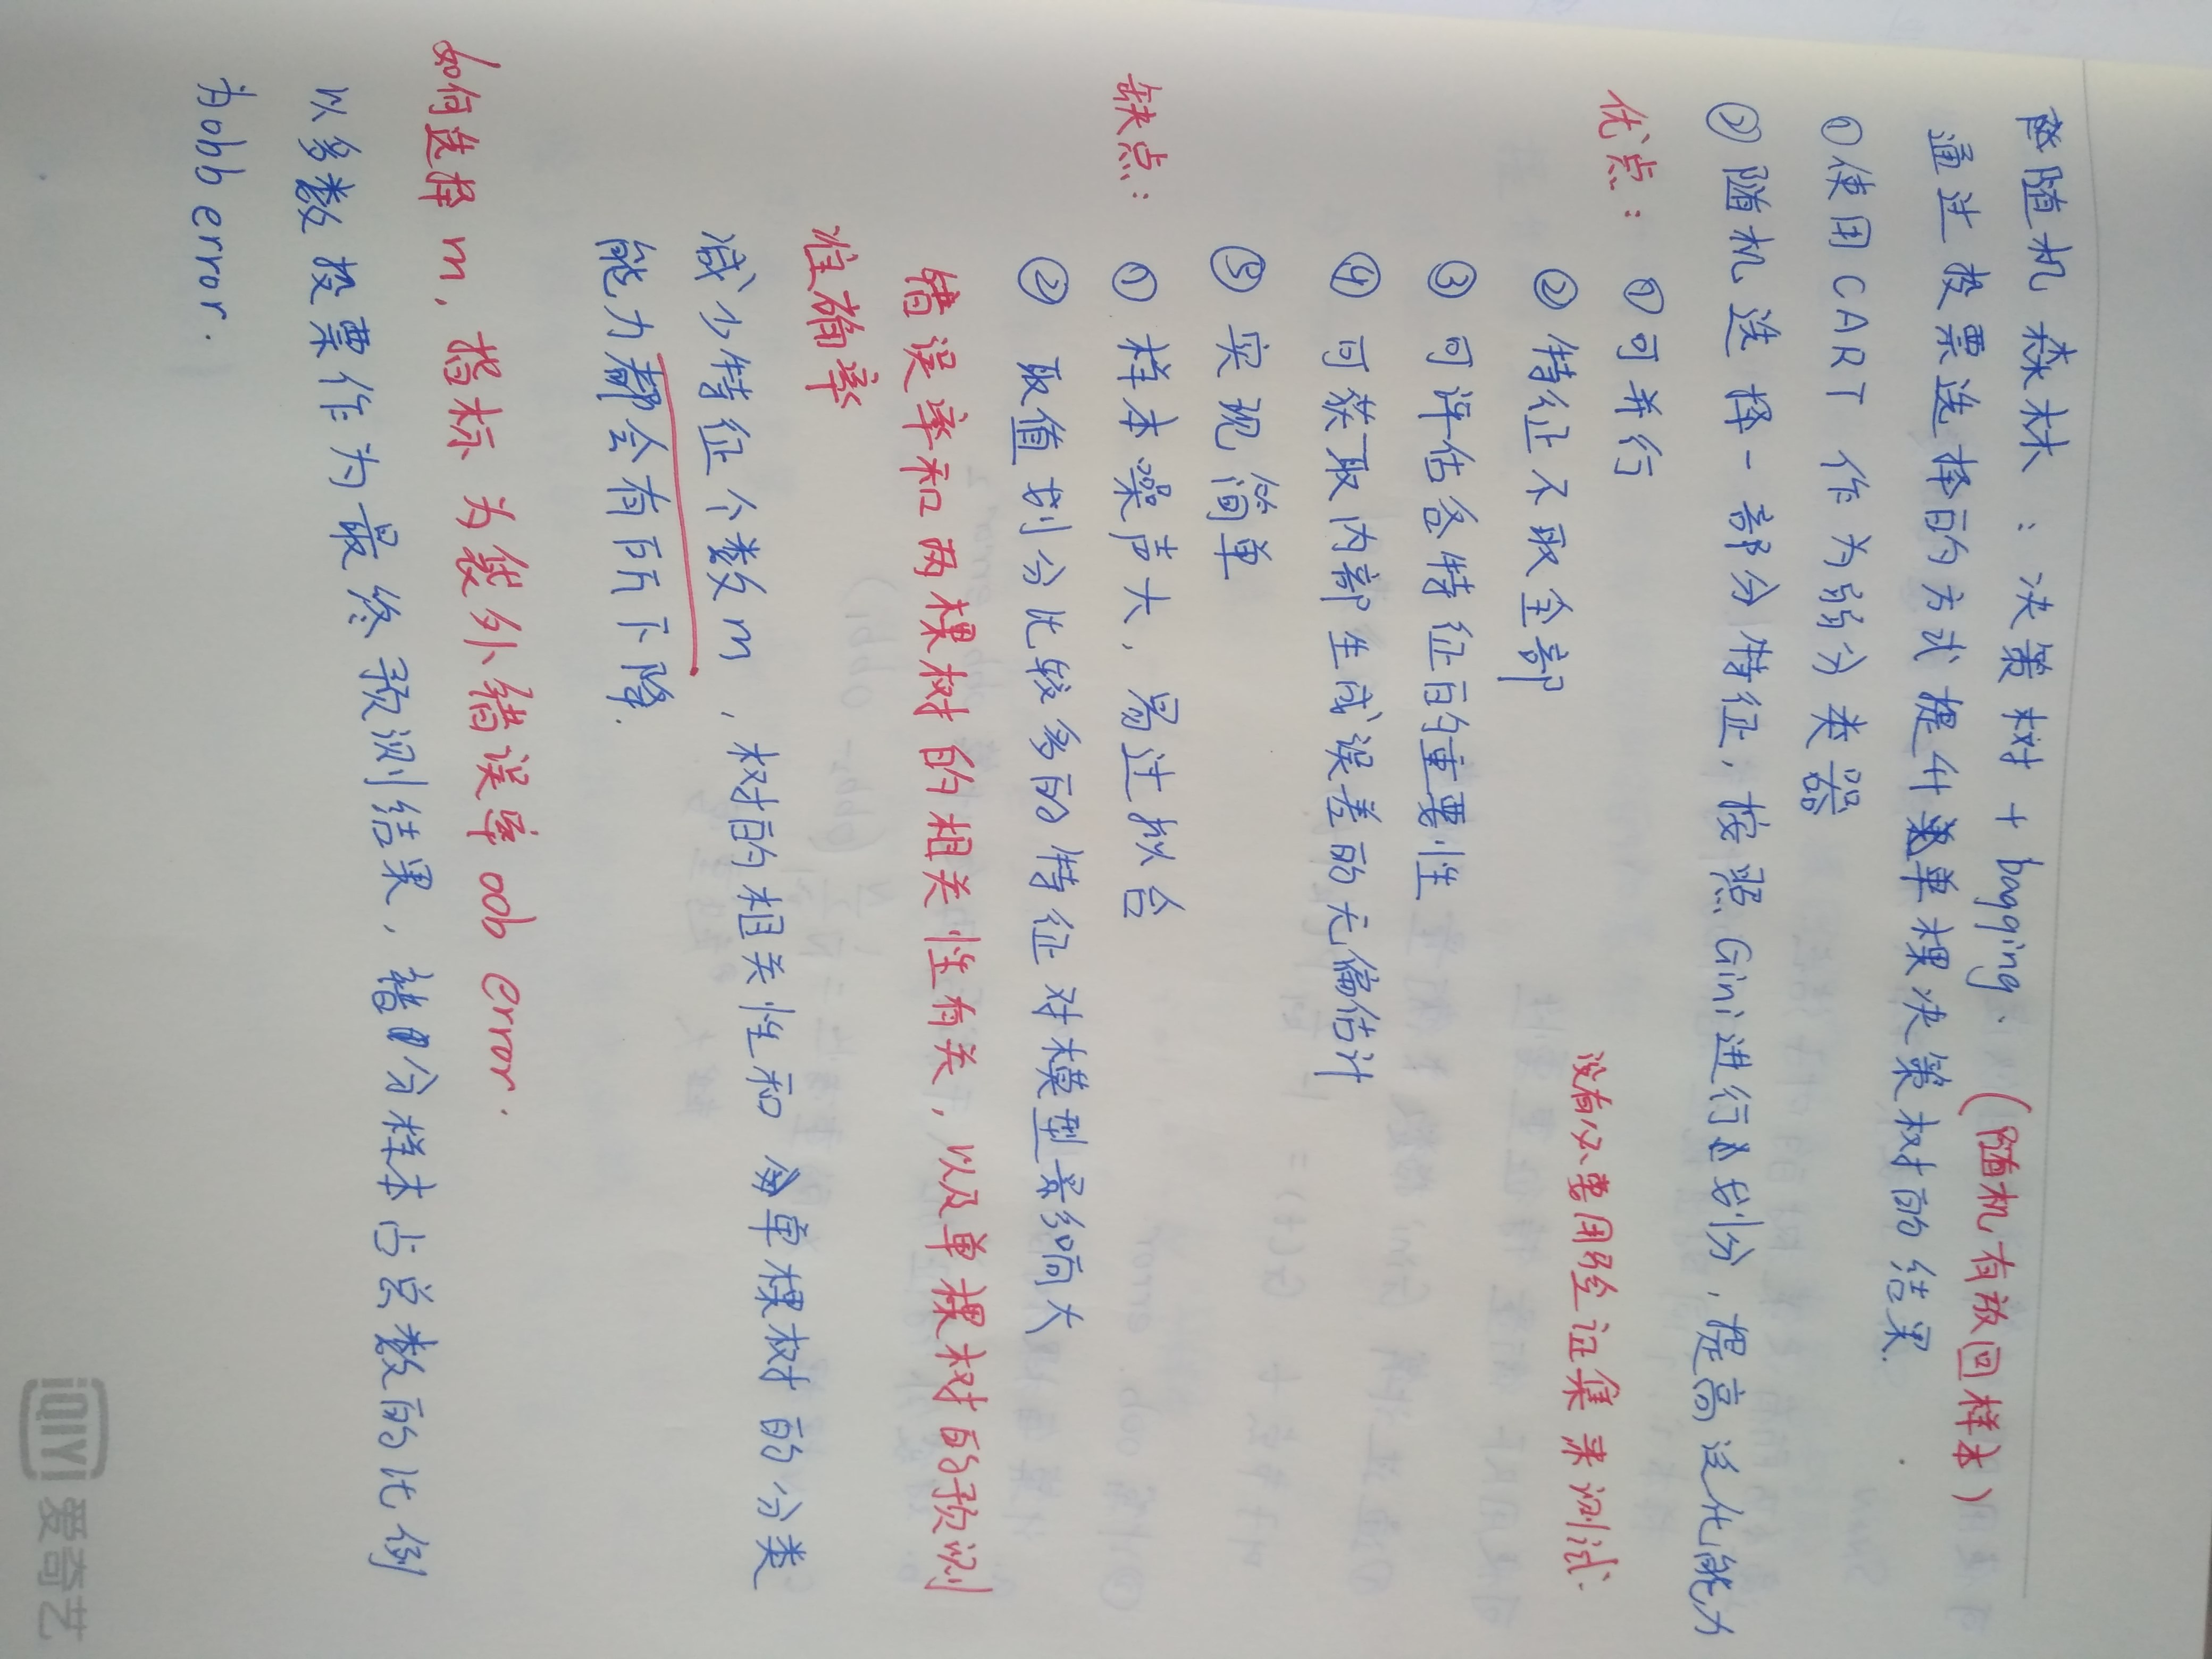 随机森林：决策树 + bagging. (随机有放回样本)
通过投票选择的方式提升单棵决策树的结果.
①使用CART 作为弱分类器
②随机选择一部分特征，按照Gini进行划分，提高泛化能力
优点：①可并行
②特征不取全部
没有必要用验证集来测试.
③可评估各特征的重要性
④可获取内部生成误差的无偏估计
⑤实现简单
缺点：①样本噪声大，易过拟合
②取值划分比较多的特征对模型影响大
错误率和两棵树的相关性有关，以及单棵树的预测
准确率
减少特征个数m，树的相关性和单棵树的分类
能力都会有所下降.
如何选择m，指标为袋外错误率oob error.
以多数投票作为最终预测结果，错分样本占总数的比例
为obb error.
iQIYI 爱奇艺